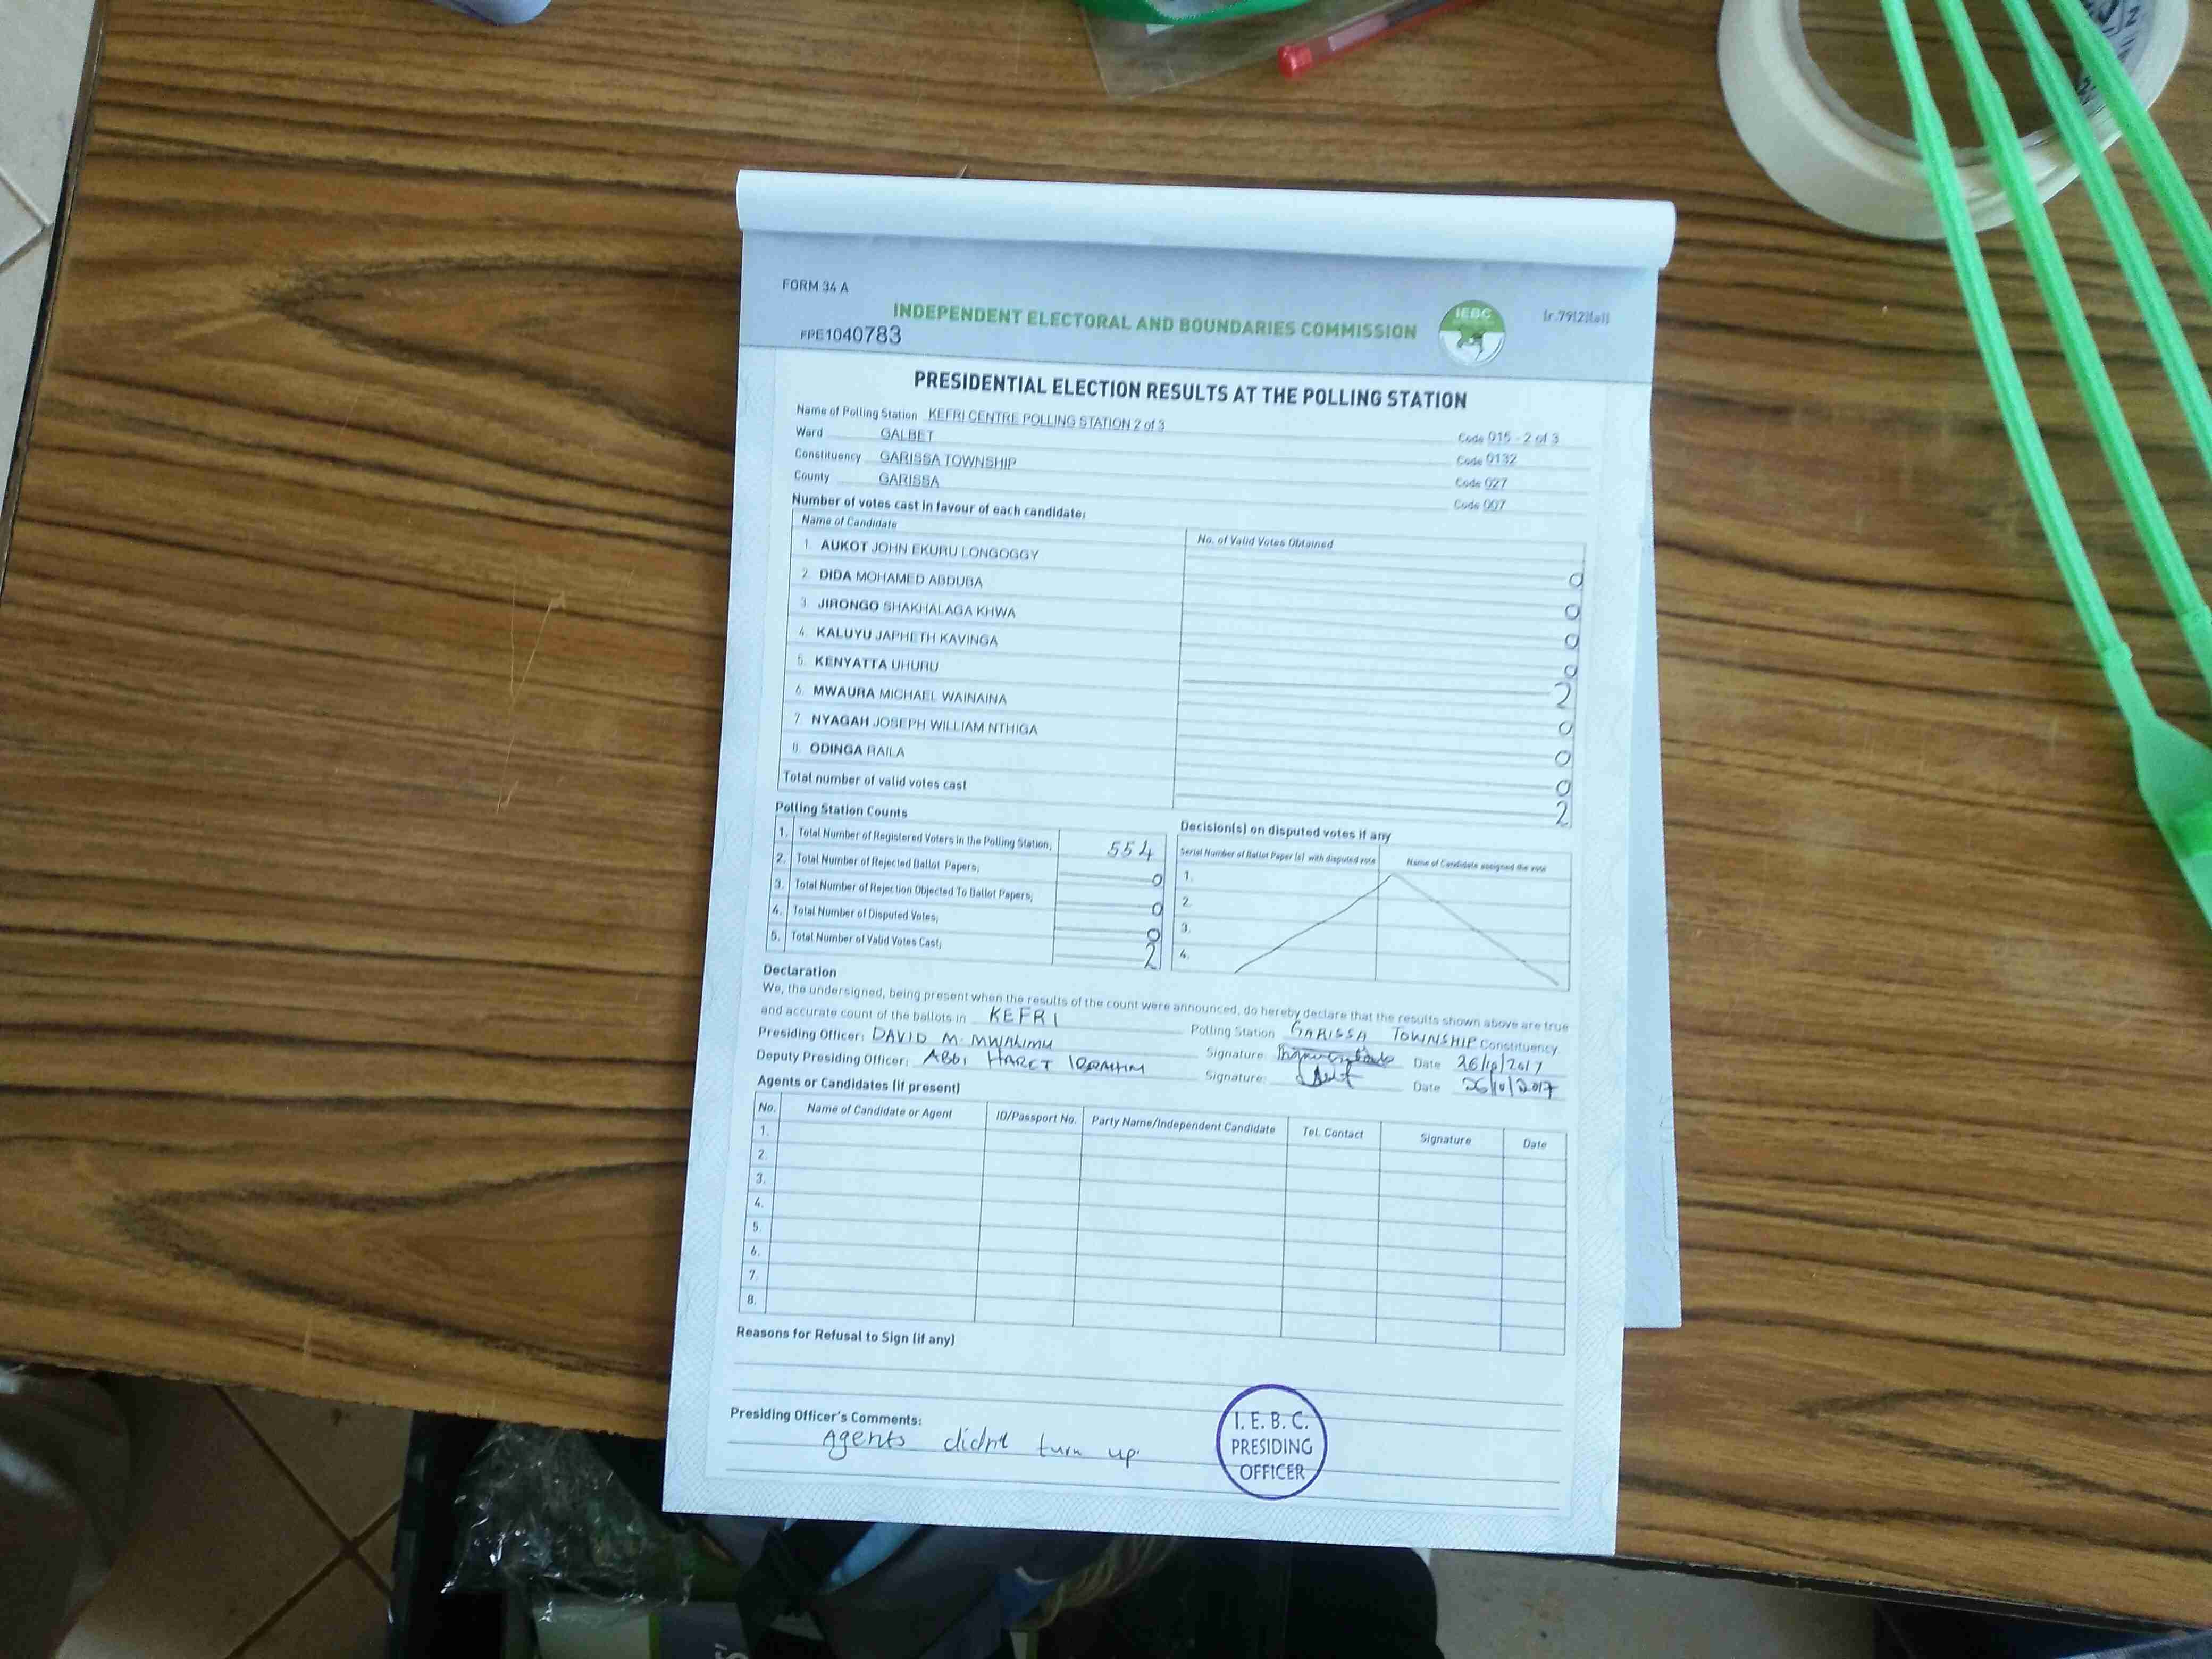 FORM 34 A
INDEPENDENT ELECTORAL AND BOUNDARIES COMMISSION
IEBC
(r.79(2)(a))
FPE1040783
PRESIDENTIAL ELECTION RESULTS AT THE POLLING STATION
Name of Polling Station KEFRI CENTRE POLLING STATION 2 of 3 Code 015 - 2 of 3
Ward GALBET Code 0132
Constituency GARISSA TOWNSHIP Code 027
County GARISSA Code 007
Number of votes cast in favour of each candidate:
Name of Candidate No. of Valid Votes Obtained
1. AUKOT JOHN EKURU LONGOGGY 0
2. DIDA MOHAMED ABDUBA 0
3. JIRONGO SHAKHALAGA KHWA 0
4. KALUYU JAPHETH KAVINGA 0
5. KENYATTA UHURU 2
6. MWAURA MICHAEL WAINAINA 0
7. NYAGAH JOSEPH WILLIAM NTHIGA 0
8. ODINGA RAILA 0
Total number of valid votes cast 2
Polling Station Counts
1. Total Number of Registered Voters in the Polling Station; 554
2. Total Number of Rejected Ballot Papers; 0
3. Total Number of Rejection Objected To Ballot Papers; 0
4. Total Number of Disputed Votes; 0
5. Total Number of Valid Votes Cast; 2
Decision(s) on disputed votes if any
Serial Number of Ballot Paper (s) with disputed vote Name of Candidate assigned the vote
1.
2.
3.
4.
Declaration
We, the undersigned, being present when the results of the count were announced, do hereby declare that the results shown above are true
and accurate count of the ballots in KEFRI Polling Station GARISSA TOWNSHIP Constituency
Presiding Officer: DAVID M. MWALIMU Signature Date 26/10/2017
Deputy Presiding Officer: ABDI HARET IBRAHIM Signature: Date 26/10/2017
Agents or Candidates (if present)
No. Name of Candidate or Agent ID/Passport No. Party Name/Independent Candidate Tel. Contact Signature Date
1.
2.
3.
4.
5.
6.
7.
8.
Reasons for Refusal to Sign (if any)
Presiding Officer's Comments:
Agents didn't turn up.
I. E. B. C.
PRESIDING
OFFICER